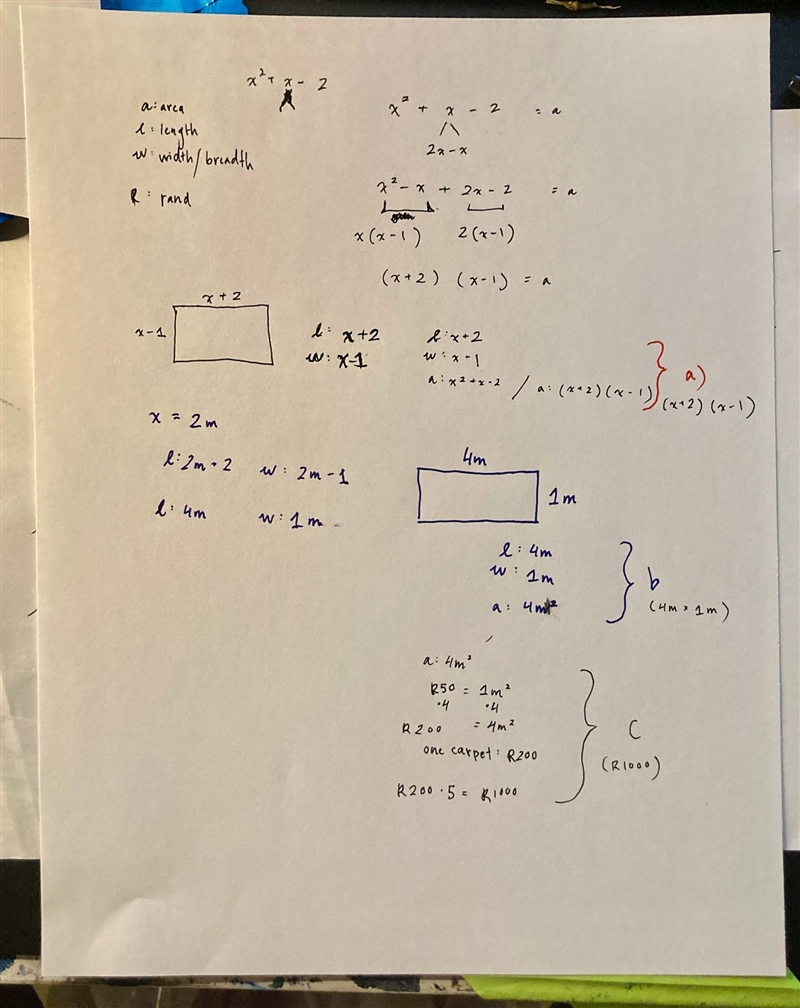 x² + x - 2
a: area
l: length
w: width/breadth
R: rand
x² + x - 2 = a
2x - x
x² - x + 2x - 2 = a
x(x-1) 2(x-1)
(x+2) (x-1) = a
x + 2
x-1
l: x+2
w: x-1
l: x+2
w: x-1
a: x²+x-2 / a: (x+2)(x-1)
a)
(x+2)(x-1)
x = 2m
l: 2m+2 w: 2m-1
l: 4m w: 1m
4m
1m
l: 4m
w: 1m
a: 4m²
b
(4m × 1m)
a: 4m²
R50 = 1m²
·4 ·4
R200 = 4m²
one carpet: R200
R200 · 5 = R1000
C
(R1000)